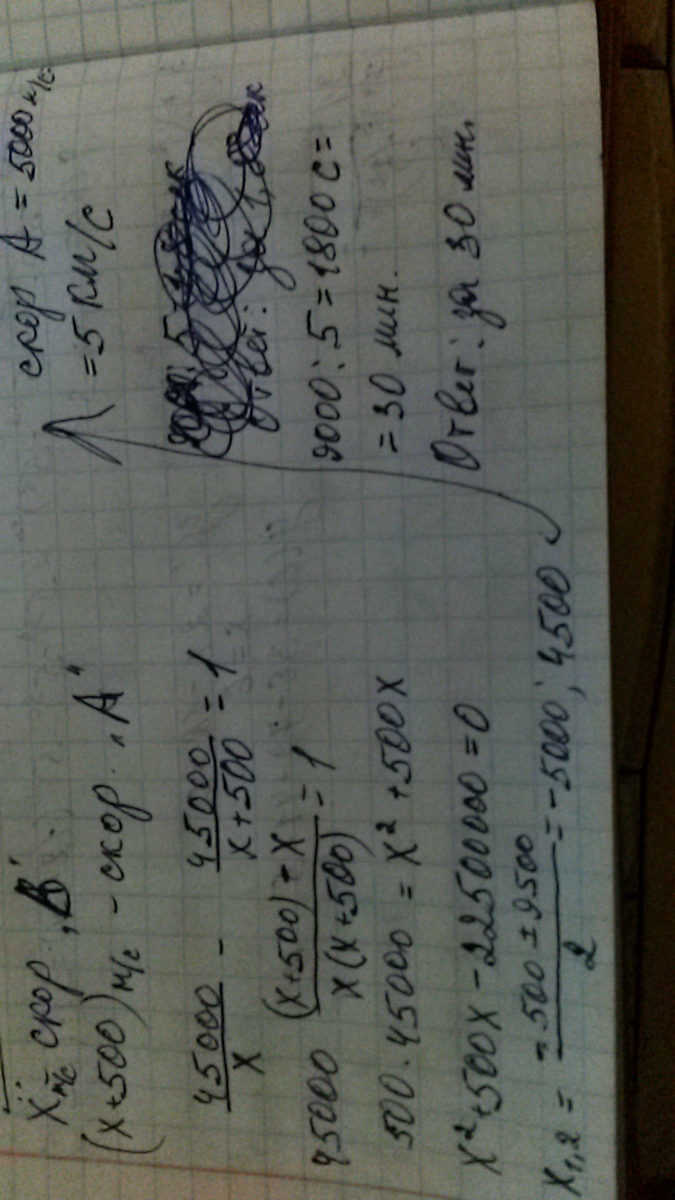 x м/с скор „В"
(x+500) м/с - скор. „А"
45000/x - 45000/(x+500) = 1
45000 ((x+500) - x)/(x(x+500)) = 1
500·45000 = x² + 500x
x² + 500x - 22500000 = 0
x₁,₂ = (-500 ± 9500)/2 = -5000; 4500
скор А = 5000 м/с
= 5 км/с
Ответ: за
9000 : 5 = 1800 с =
= 30 мин.
Ответ: за 30 мин.